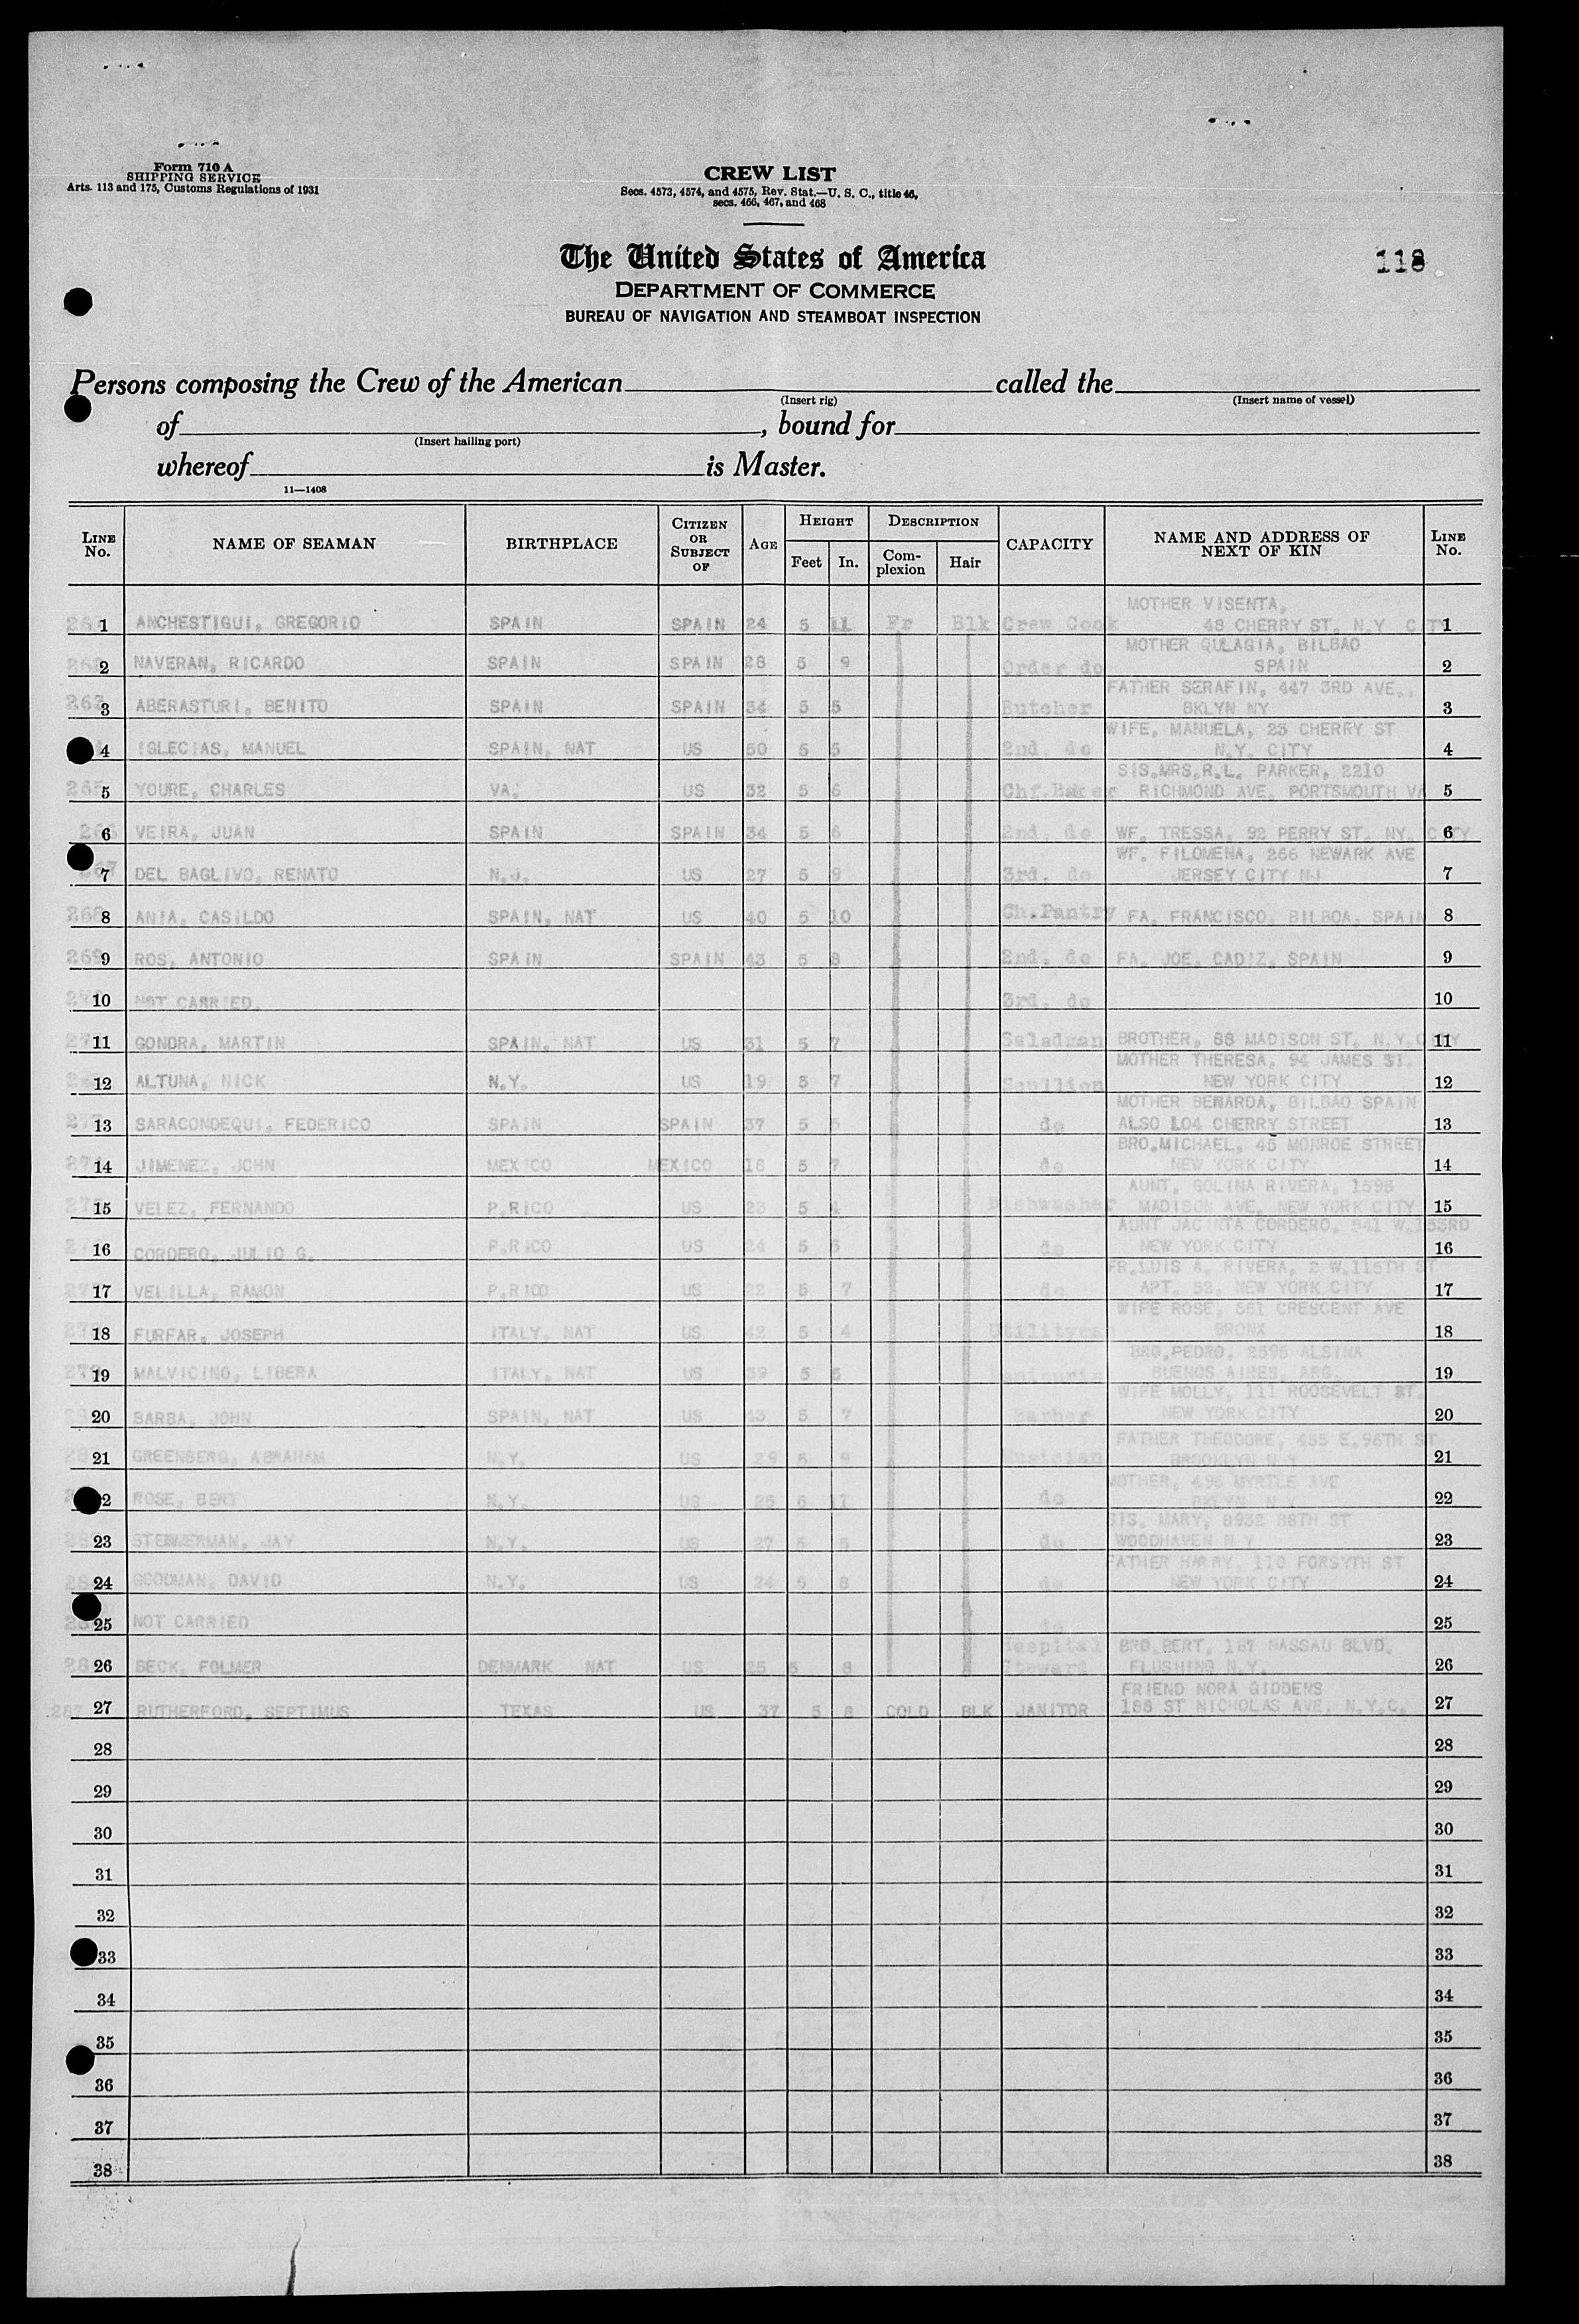 Form 710 A
SHIPPING SERVICE
Arts. 113 and 175, Customs Regulations of 1931
CREW LIST
Secs. 4573, 4574, and 4575, Rev. Stat.—U. S. C., title 46,
secs. 466, 467, and 468
The United States of America
DEPARTMENT OF COMMERCE
BUREAU OF NAVIGATION AND STEAMBOAT INSPECTION
118
Persons composing the Crew of the American called the
(Insert rig) (Insert name of vessel)
of , bound for
(Insert hailing port)
whereof is Master.
11—1408
LINE No. NAME OF SEAMAN BIRTHPLACE CITIZEN OR SUBJECT OF AGE HEIGHT Feet In. DESCRIPTION Complexion Hair CAPACITY NAME AND ADDRESS OF NEXT OF KIN LINE No.
1 ANCHESTIGUI, GREGORIO SPAIN SPAIN 24 5 11 Fr Blk Crew Cook MOTHER VISENTA, 48 CHERRY ST. N.Y CITY 1
2 NAVERAN, RICARDO SPAIN SPAIN 28 5 9 Order do MOTHER QULAGIA, BILBAO SPAIN 2
263 3 ABERASTURI, BENITO SPAIN SPAIN 34 5 5 Butcher FATHER SERAFIN, 447 3RD AVE., BKLYN NY 3
4 IGLECIAS, MANUEL SPAIN, NAT US 50 5 5 2nd. do WIFE, MANUELA, 25 CHERRY ST N.Y. CITY 4
265 5 YOURE, CHARLES VA. US 32 5 6 Chf.Baker SIS.MRS.R.L. PARKER, 2210 RICHMOND AVE. PORTSMOUTH VA 5
266 6 VEIRA, JUAN SPAIN SPAIN 34 5 6 2nd. do WF. TRESSA, 92 PERRY ST. NY. CITY 6
267 7 DEL BAGLIVO, RENATO N.J. US 27 5 9 3rd. do WF. FILOMENA, 266 NEWARK AVE JERSEY CITY NJ 7
268 8 ANIA, CASILDO SPAIN, NAT US 40 5 10 Ch.Pantry FA. FRANCISCO. BILBOA. SPAIN 8
269 9 ROS, ANTONIO SPAIN SPAIN 43 5 8 2nd. do FA. JOE. CADIZ. SPAIN 9
10 NOT CARRIED. 3rd. do 10
11 GONDRA, MARTIN SPAIN, NAT US 31 5 7 Saladman BROTHER, 88 MADISON ST. N.Y. CITY 11
12 ALTUNA, NICK N.Y. US 19 5 7 Scullion MOTHER THERESA, 94 JAMES ST. NEW YORK CITY 12
13 SARACONDEQUI, FEDERICO SPAIN SPAIN 37 5 5 do MOTHER BENARDA, BILBAO SPAIN ALSO 104 CHERRY STREET 13
14 JIMENEZ, JOHN MEXICO MEXICO 18 5 7 do BRO.MICHAEL, 45 MONROE STREET NEW YORK CITY 14
15 VELEZ, FERNANDO P.RICO US 23 5 4 Dishwasher AUNT, GOLINA RIVERA, 1595 MADISON AVE. NEW YORK CITY 15
16 CORDERO, JULIO G. P.RICO US 24 5 do AUNT JACINTA CORDERO, 541 W.153RD NEW YORK CITY 16
17 VELILLA, RAMON P.RICO US 22 5 7 do FR.LUIS A. RIVERA, 2 W.115TH ST APT. 52, NEW YORK CITY 17
18 FURFAR, JOSEPH ITALY, NAT US 42 5 4 Utilityman WIFE ROSE, 551 CRESCENT AVE BRONX 18
279 19 MALVICINO, LIBERA ITALY, NAT US 39 5 5 BRO.PEDRO, 2595 ALSINA BUENOS AIRES, ARG. 19
20 BARBA, JOHN SPAIN, NAT US 43 5 7 Barber WIFE MOLLY, 111 ROOSEVELT ST. NEW YORK CITY 20
21 GREENBERG, ABRAHAM N.Y. US 29 5 9 Musician FATHER THEODORE, 455 E.98TH ST BROOKLYN N.Y 21
2 ROSE, BERT N.Y. US 25 5 11 do MOTHER, 496 MYRTLE AVE BKLYN N.Y. 22
23 N.Y. US 27 5 5 do SIS. MARY, 8932 88TH ST WOODHAVEN N Y 23
24 GOODMAN, DAVID N.Y. US 24 5 8 do FATHER HARRY, 110 FORSYTH ST NEW YORK CITY 24
25 NOT CARRIED do 25
26 BECK, FOLMER DENMARK NAT US 25 5 8 Hospital Steward BRO.BERT, 187 NASSAU BLVD. FLUSHING N.Y. 26
287 27 RUTHERFORD, SEPTIMUS TEXAS US 37 5 8 COLD BLK JANITOR FRIEND NORA GIDDENS 188 ST NICHOLAS AVE. N.Y.C. 27
28 28
29 29
30 30
31 31
32 32
33 33
34 34
35 35
36 36
37 37
38 38